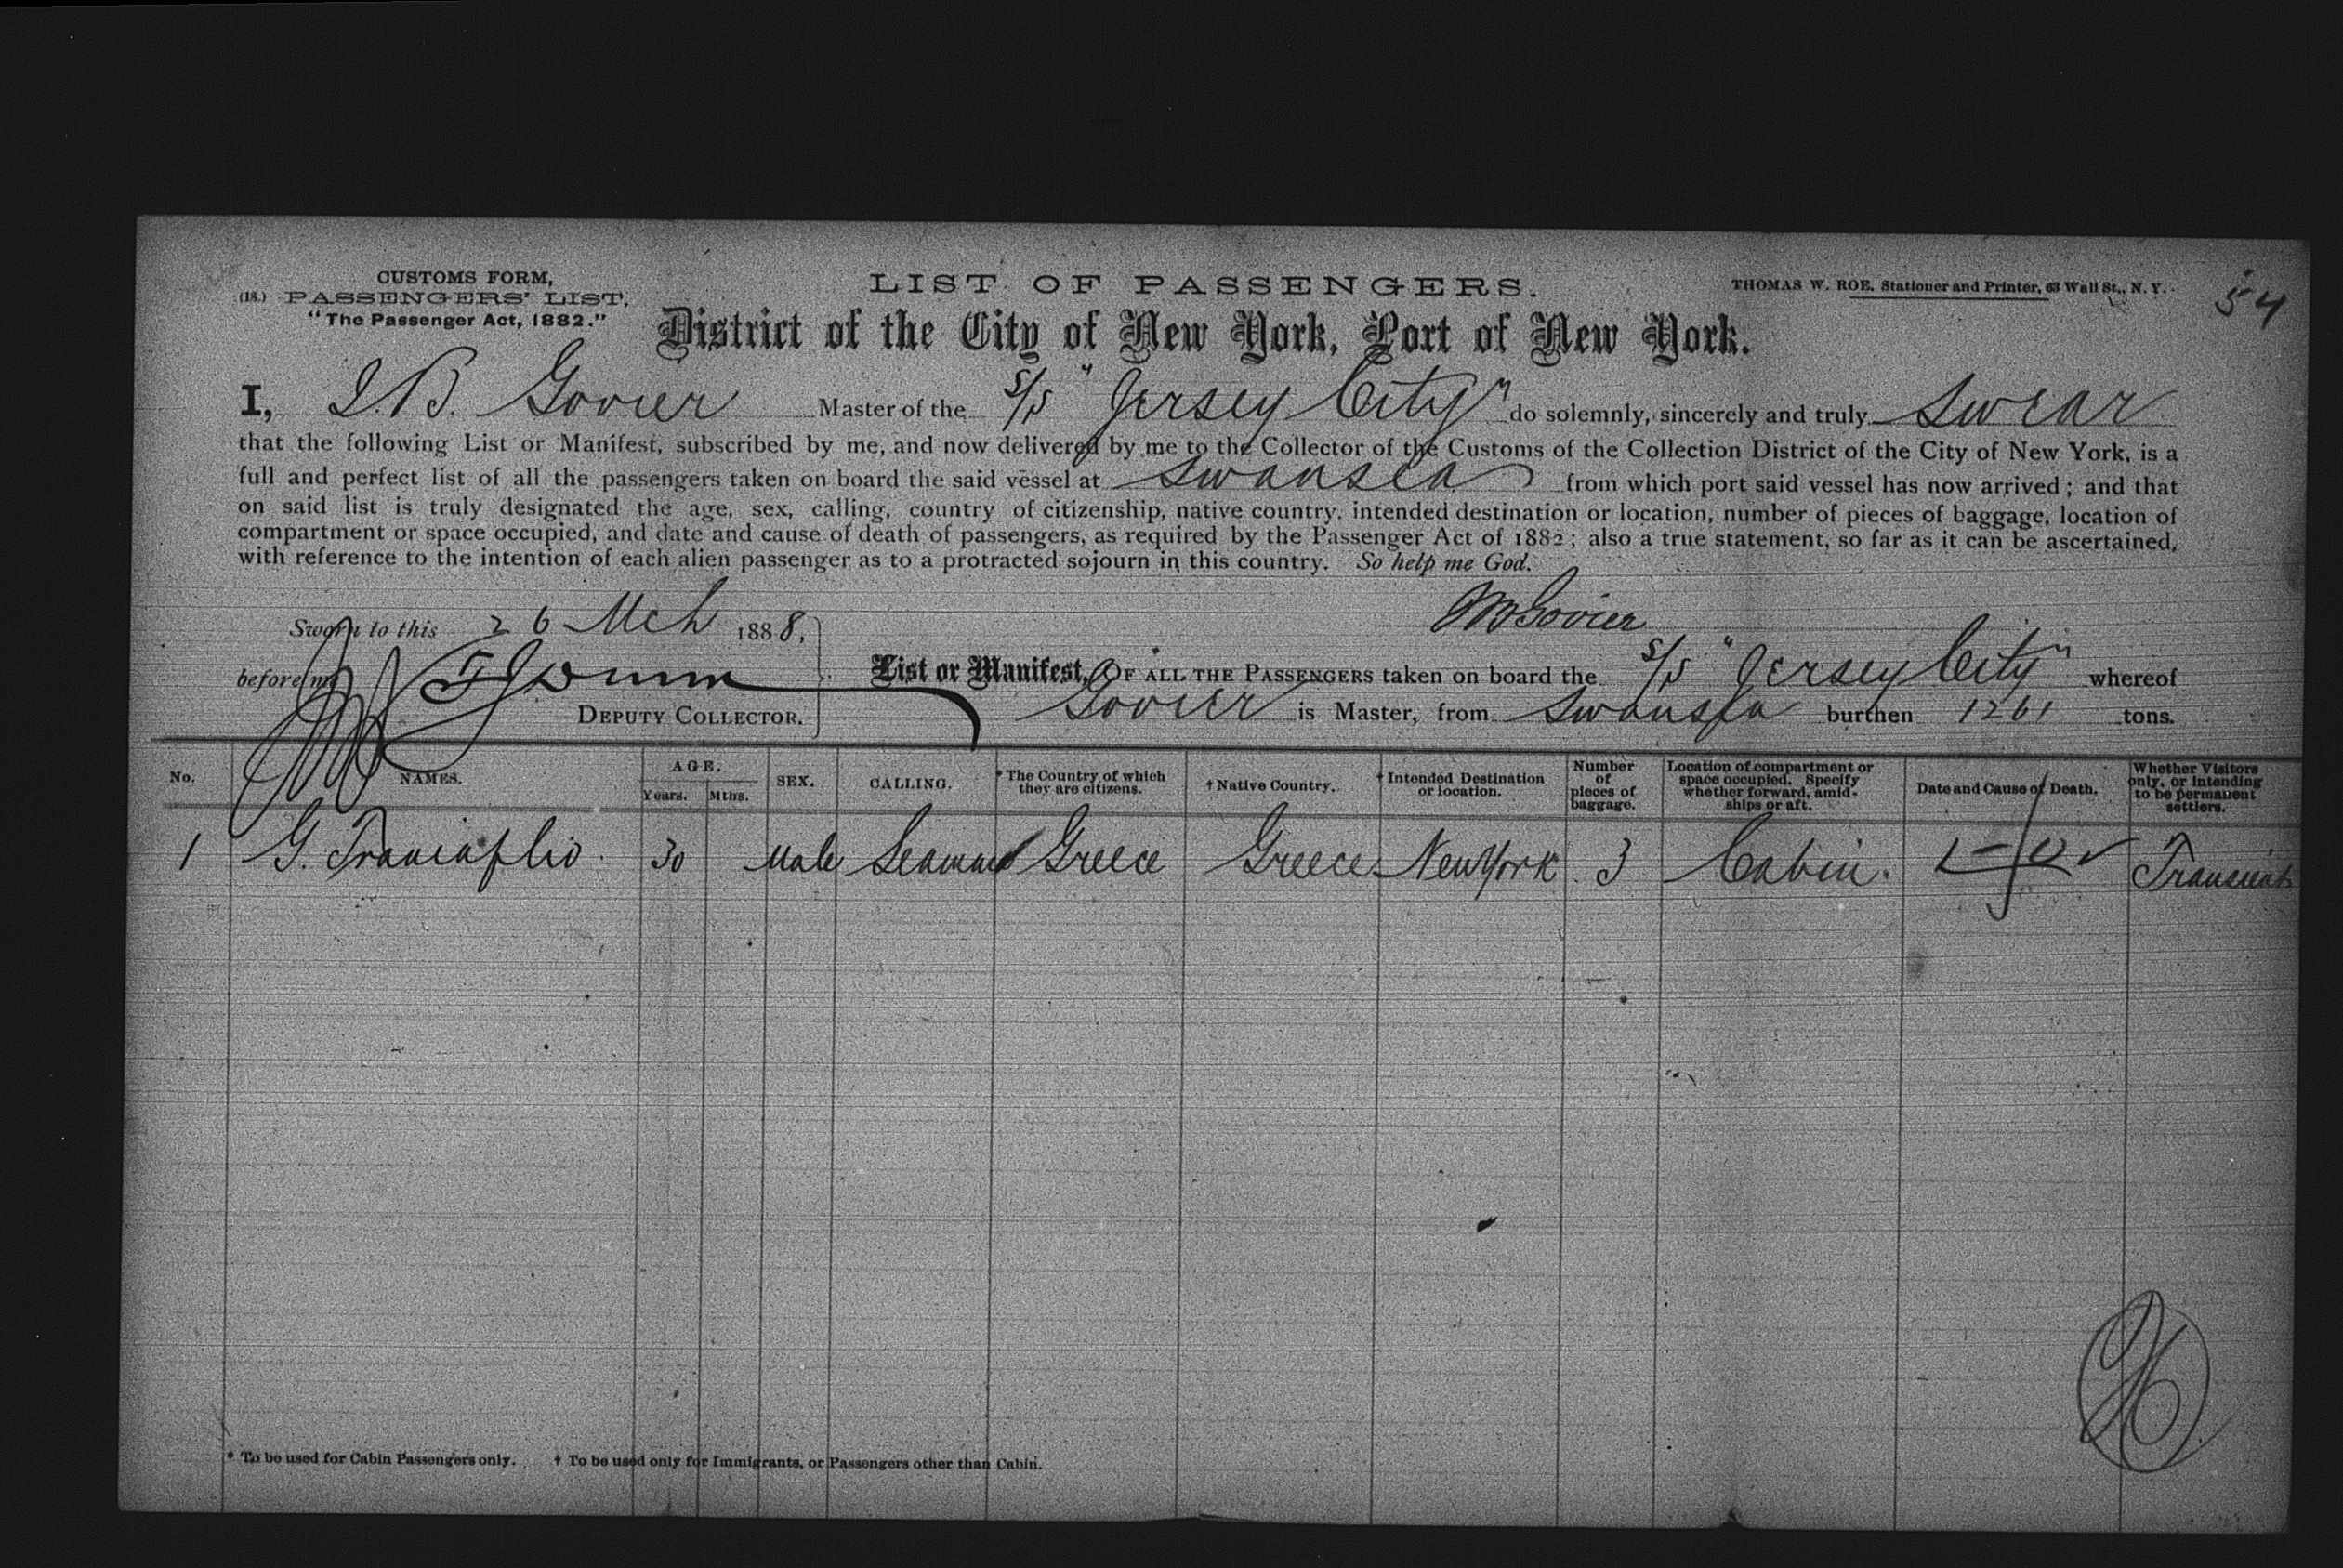 CUSTOMS FORM,
(18.) PASSENGERS' LIST,
"The Passenger Act, 1882."
LIST OF PASSENGERS.
THOMAS W. ROE, Stationer and Printer, 63 Wall St., N. Y.
54
District of the City of New York, Port of New York.
I, J.B. Govier Master of the S/S "Jersey City" do solemnly, sincerely and truly swear
that the following List or Manifest, subscribed by me, and now delivered by me to the Collector of the Customs of the Collection District of the City of New York, is a
full and perfect list of all the passengers taken on board the said vessel at Swansea from which port said vessel has now arrived; and that
on said list is truly designated the age, sex, calling, country of citizenship, native country, intended destination or location, number of pieces of baggage, location of
compartment or space occupied, and date and cause of death of passengers, as required by the Passenger Act of 1882; also a true statement, so far as it can be ascertained,
with reference to the intention of each alien passenger as to a protracted sojourn in this country. So help me God.
Sworn to this 26 Mch 1888,
Govier
before me
DEPUTY COLLECTOR.
List or Manifest, OF ALL THE PASSENGERS taken on board the S/S "Jersey City" whereof
Govier is Master, from Swansea burthen 1261 tons.
No. NAMES. AGE. Years. Mths. SEX. CALLING. * The Country of which they are citizens. † Native Country. † Intended Destination or location. Number of pieces of baggage. Location of compartment or space occupied. Specify whether forward, amidships or aft. Date and Cause of Death. Whether Visitors only, or intending to be permanent settlers.
1 G. 30 Male Seaman Greece Greece New York 3 Cabin. Transient
* To be used for Cabin Passengers only. † To be used only for Immigrants, or Passengers other than Cabin.